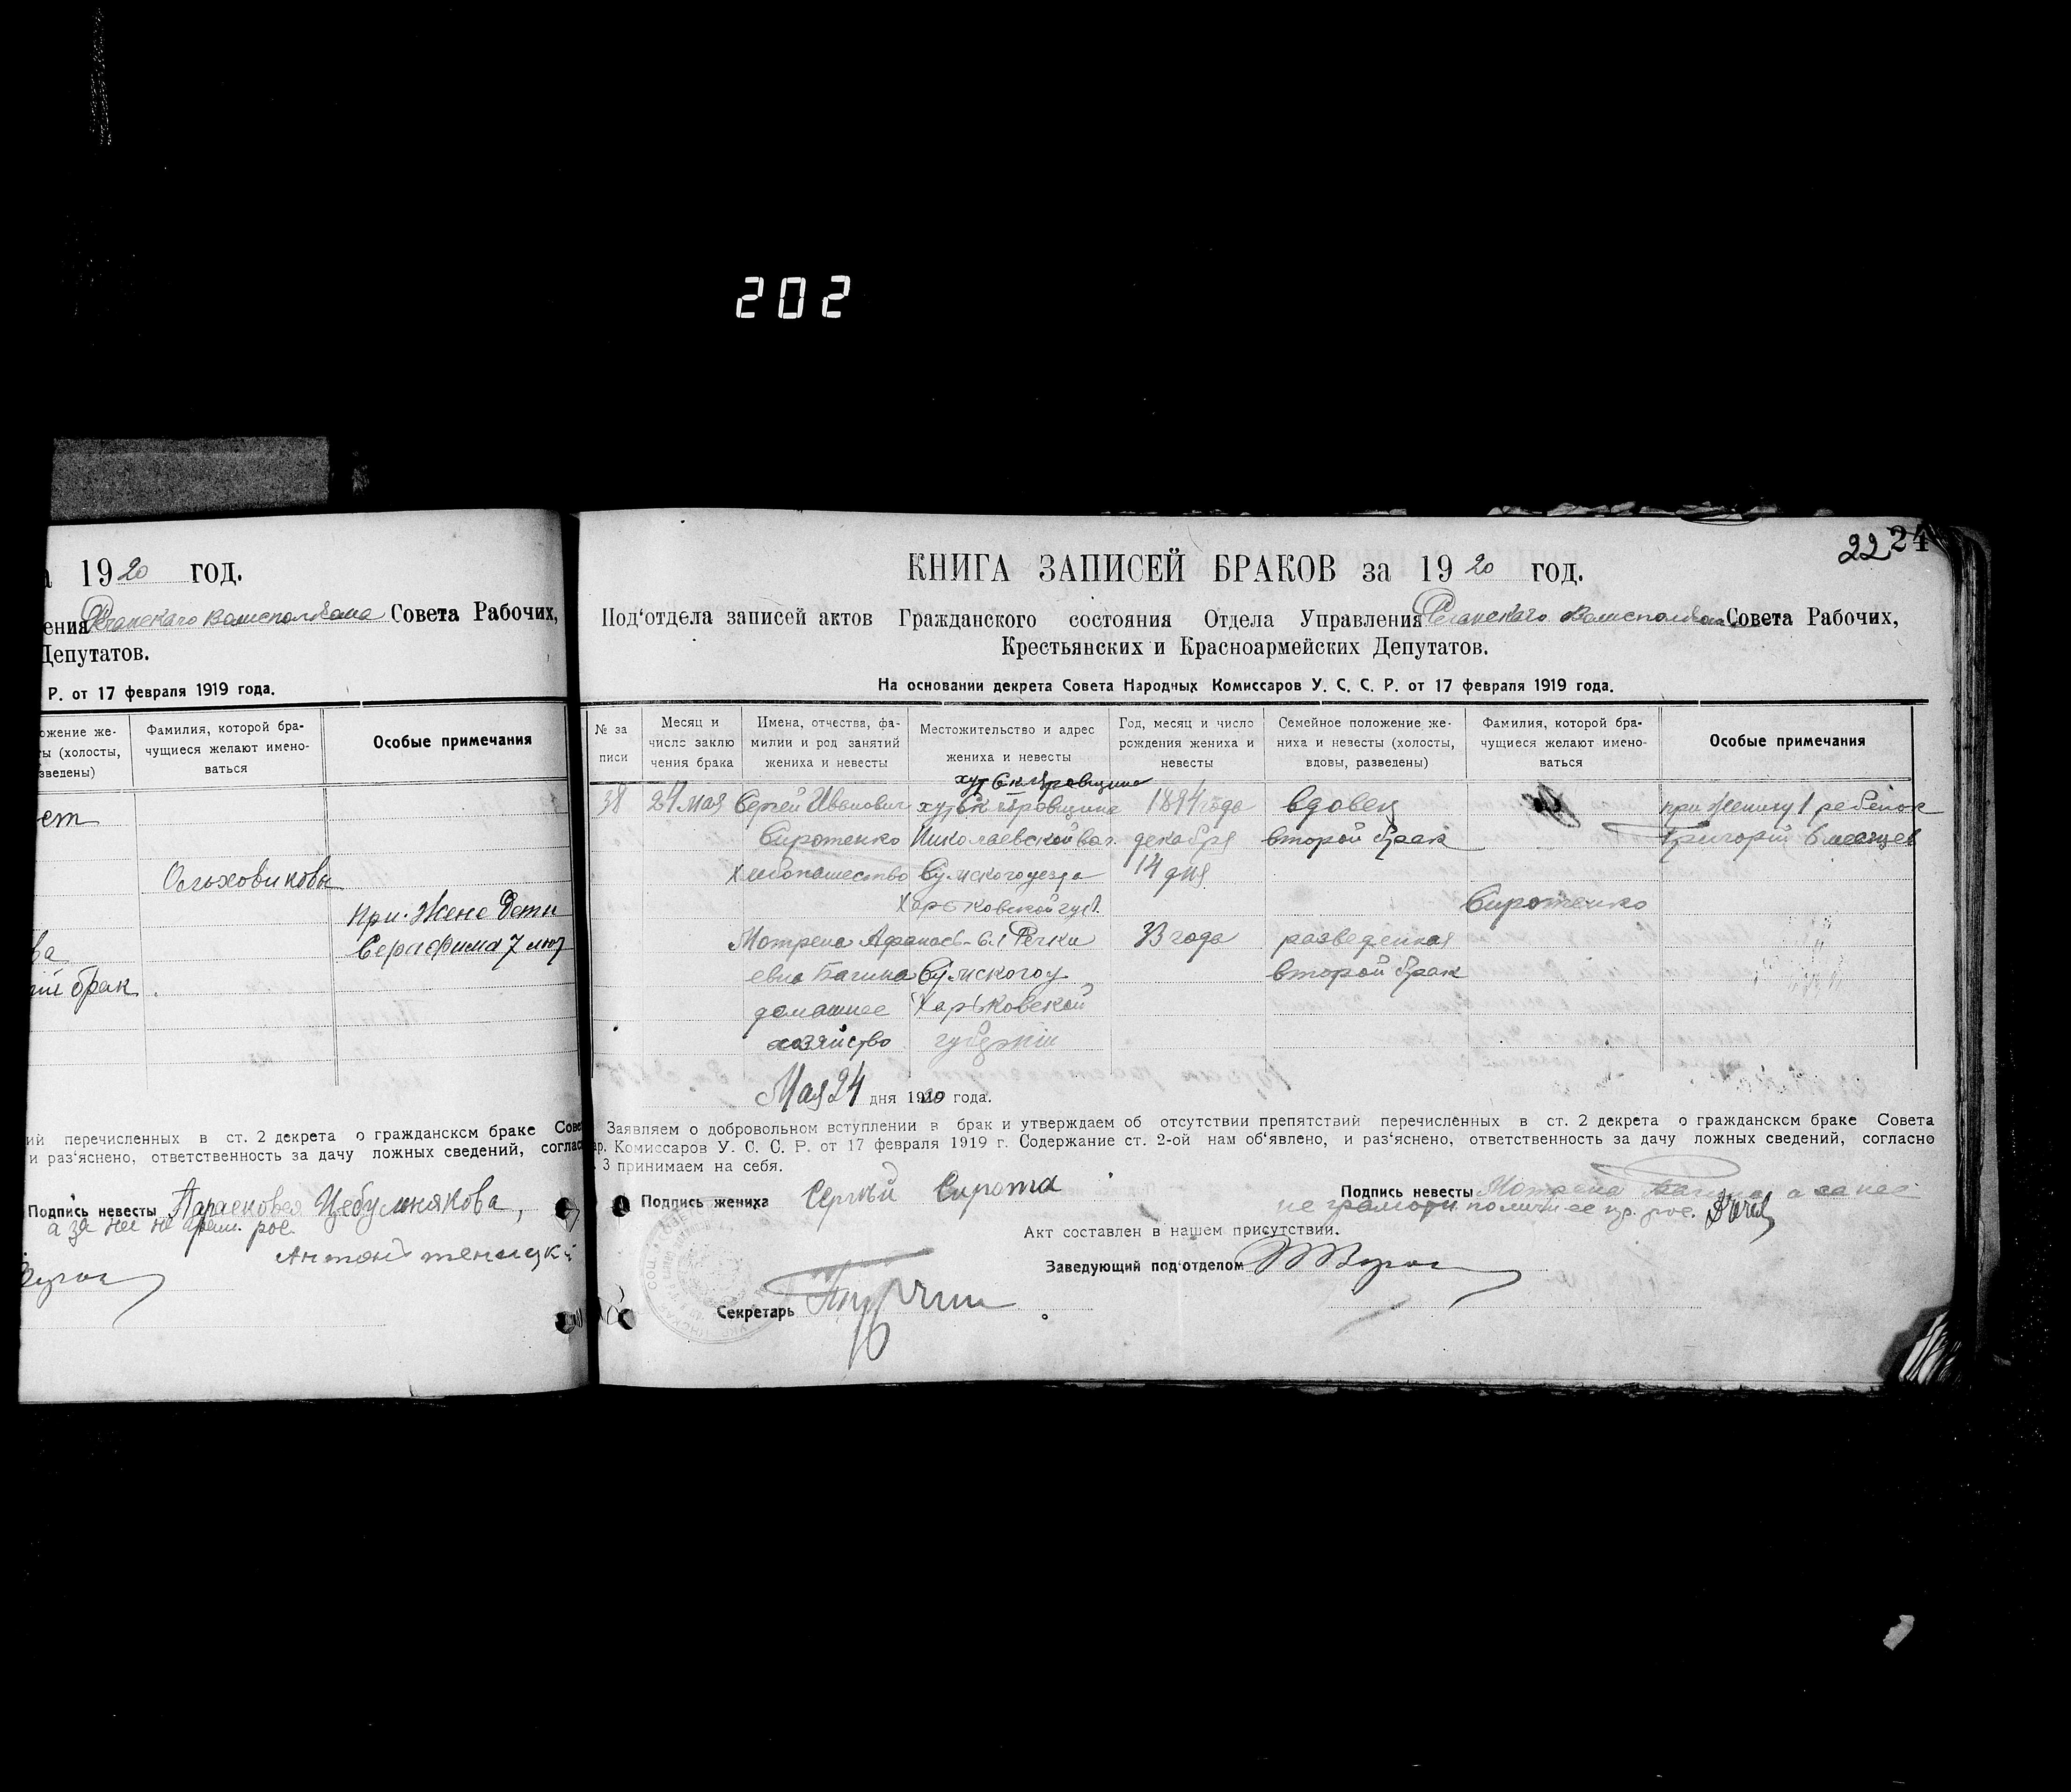 202
19 20 год.
Совета Рабочих,
Депутатов.
Р. от 17 февраля 1919 года.
Фамилия, которой бра-
чущиеся желают имено-
ваться
Особые примечания
Ольховиковы
При. Жене дети
Серафима 7 лет
брак
ий перечисленных в ст. 2 декрета о гражданском браке Сове
и раз'яснено, ответственность за дачу ложных сведений, соглас
Подпись невесты Парасковея Цебульнякова,
а за нее не грам. рос.
Антон
22 24
КНИГА ЗАПИСЕЙ БРАКОВ за 19 20 год.
Под'отдела записей актов Гражданского состояния Отдела Управления Совета Рабочих,
Крестьянских и Красноармейских Депутатов.
На основании декрета Совета Народных Комиссаров У. С. С. Р. от 17 февраля 1919 года.
№ за
писи
Месяц и
число заклю
чения брака
Имена, отчества, фа-
милии и род занятий
жениха и невесты
Местожительство и адрес
жениха и невесты
Год, месяц и число
рождения жениха и
невесты
Семейное положение же-
ниха и невесты (холосты,
вдовы, разведены)
Фамилия, которой бра-
чущиеся желают имено-
ваться
Особые примечания
38 24 мая Сергей Иванович 1894 года вдовец при Жениху 1 ребенок
Сиротенко Николаевской вол. декабря второй брак Григорий 6 месяцев
Хлебопашество Сумского уезда 14 дня
Харьковской губ. Сиротенко
Мотрена Афанась- сл Речки 33 года разведенная
евна Багина Сумского у второй брак
домашнее Харьковской
хозяйство губернии
Мая 24 дня 1920 года.
Заявляем о добровольном вступлении в брак и утверждаем об отсутствии препятствий перечисленных в ст. 2 декрета о гражданском браке Совета
ар. Комиссаров У. С. С. Р. от 17 февраля 1919 г. Содержание ст. 2-ой нам об'явлено, и раз'яснено, ответственность за дачу ложных сведений, согласно
3 принимаем на себя.
Подпись жениха Сергей Сирота
Подпись невесты Мотрена а за нее
Акт составлен в нашем присутствии.
Заведующий под'отделом
Секретарь